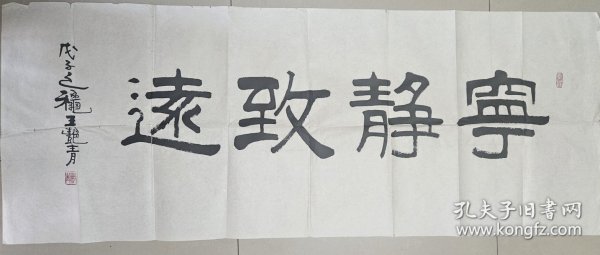 寧静致遠
戊子之
王
青
孔夫子旧书网
www.kongfz.com